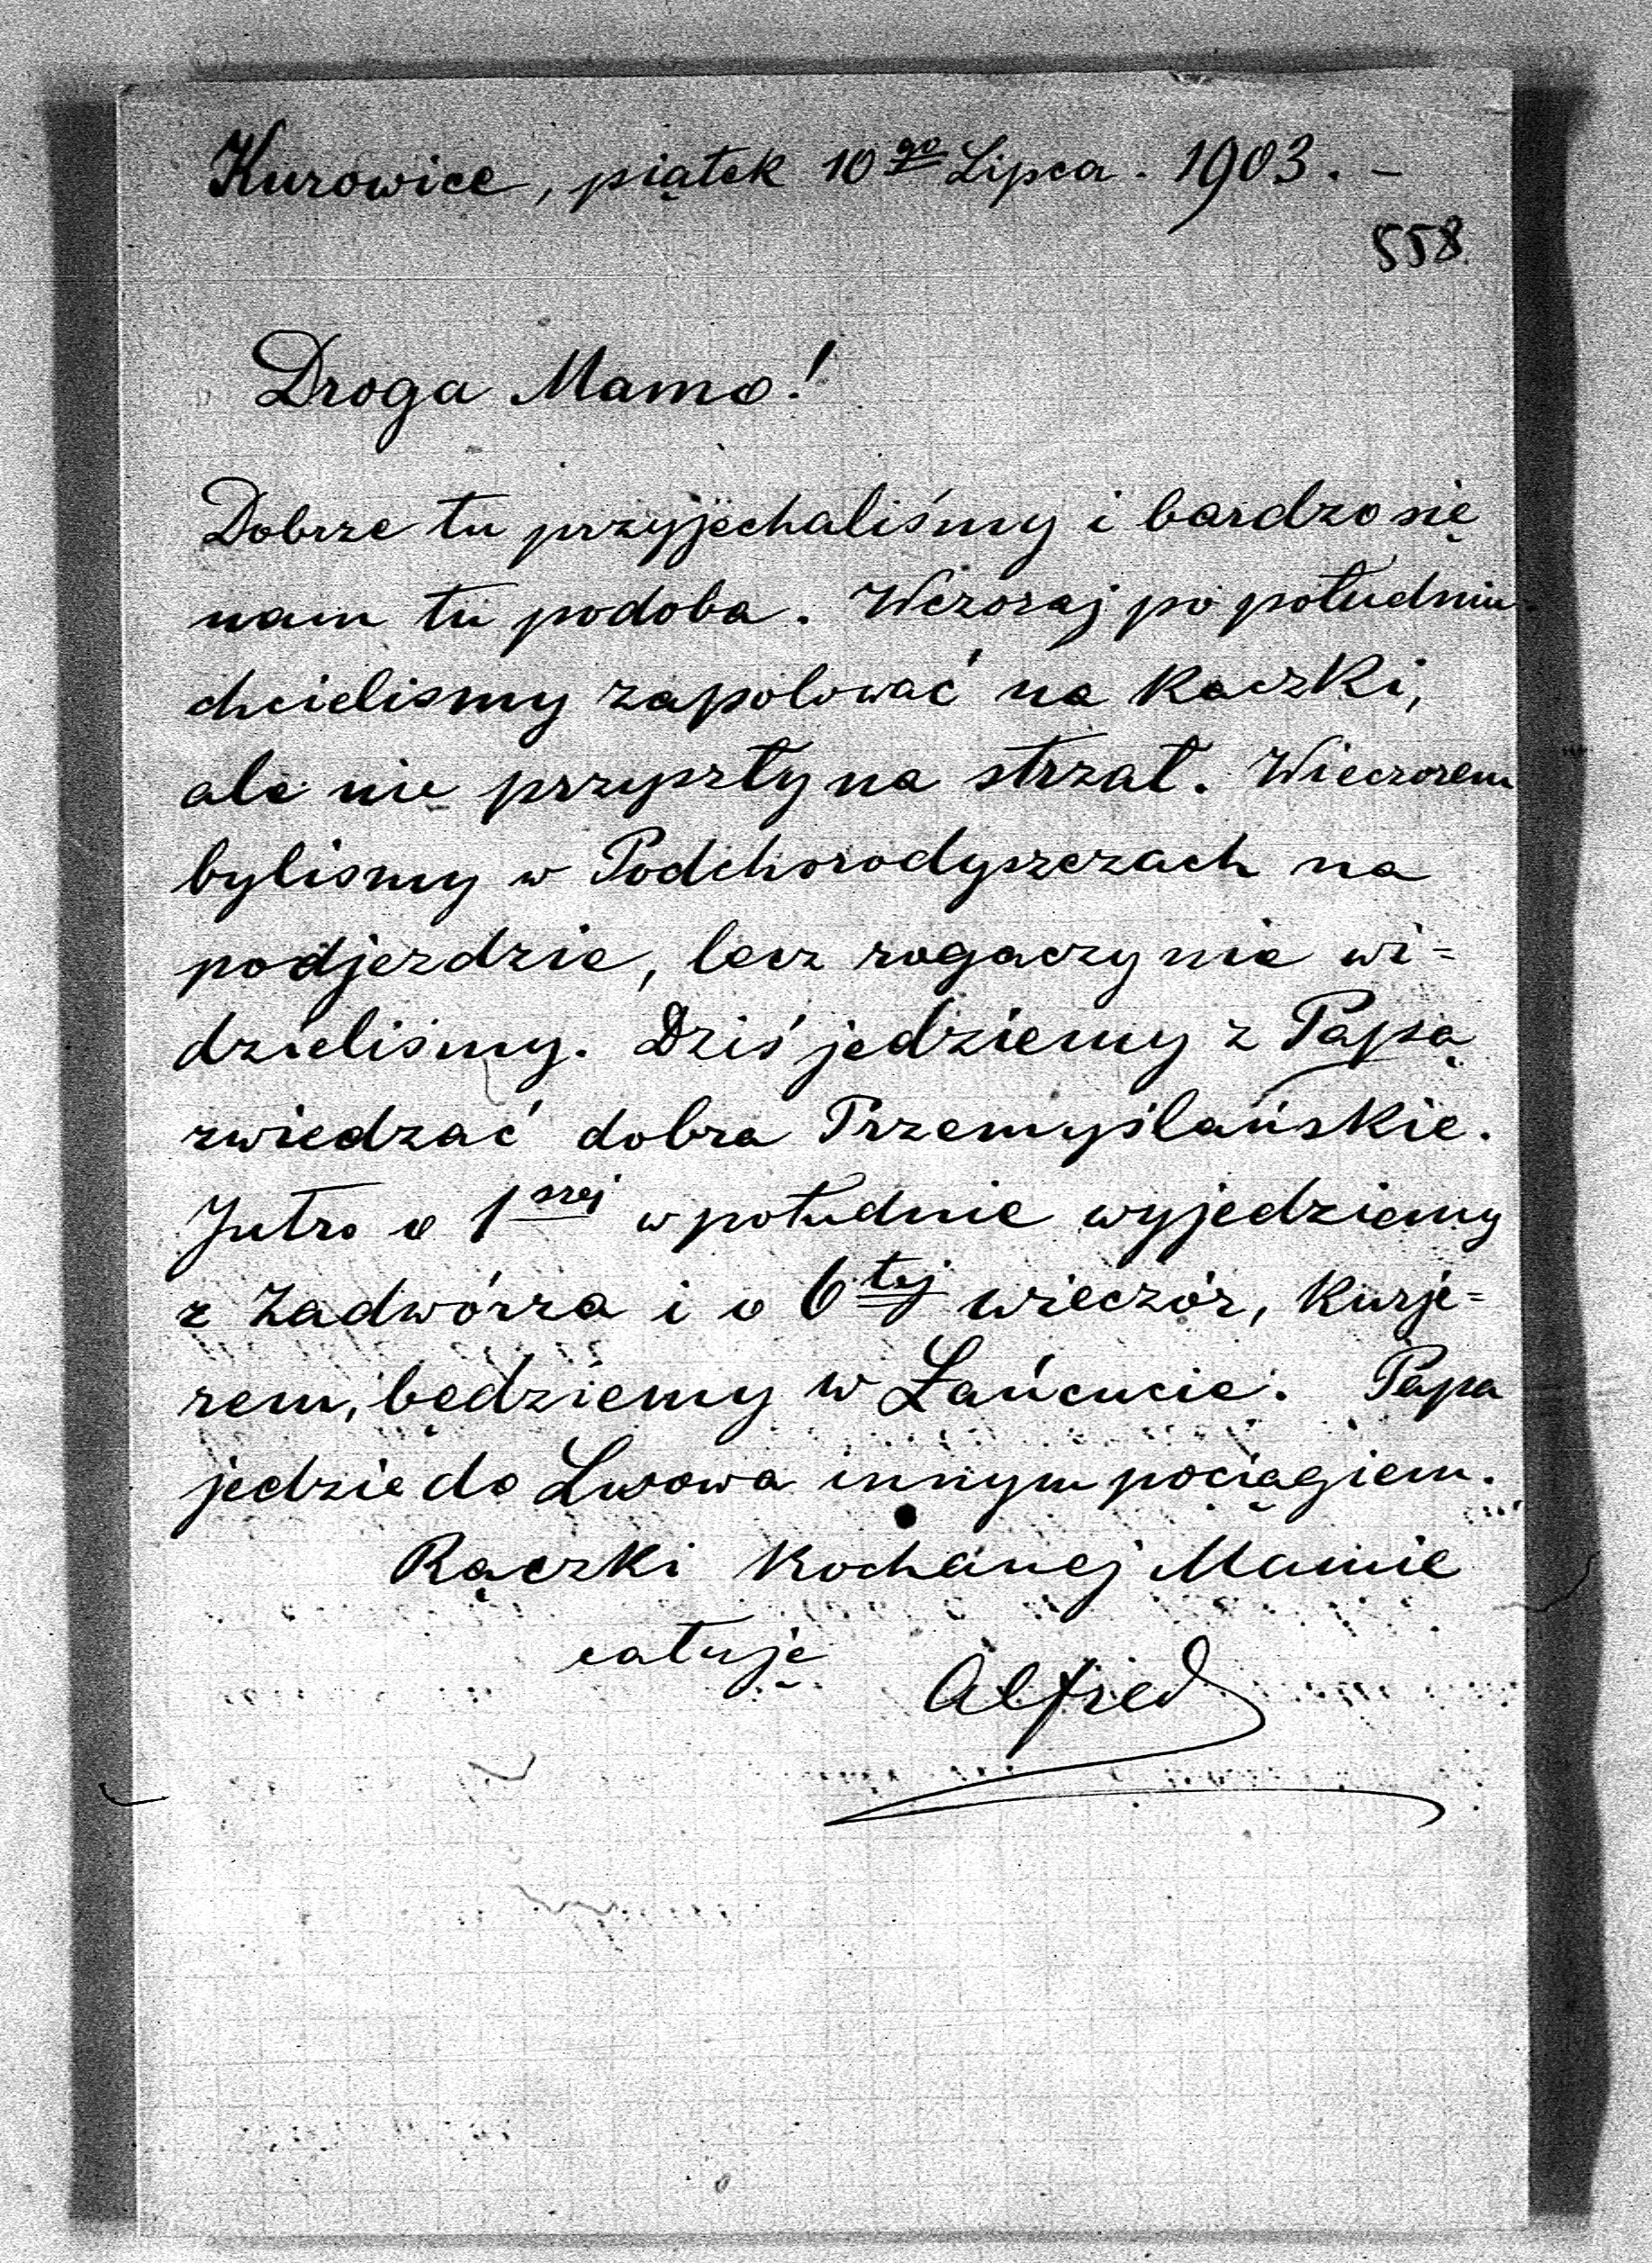 Kurowice, piątek 10go Lipca. 1903. –
558.
Droga Mamo!
Dobrze tu przyjechaliśmy i bardzo się
nam tu podoba. Wczoraj po południu
chcielismy zapolować na kaczki,
ale nie przyszły na strzał. Wieczorem
bylismy w Podchorodyszczach na
podjezdzie, lecz rogaczy nie wi=
dzieliśmy. Dziś jedziemy z Papą
zwiedzać dobra Przemyślańskie.
Jutro o 1szej w południe wyjedziemy
z Zadwórza i o 6tej wieczór, kurje=
rem, będziemy w Łańcucie. Papa
jedzie do Lwowa innym pociągiem.
Rączki kochanej Mamie
całuję Alfred